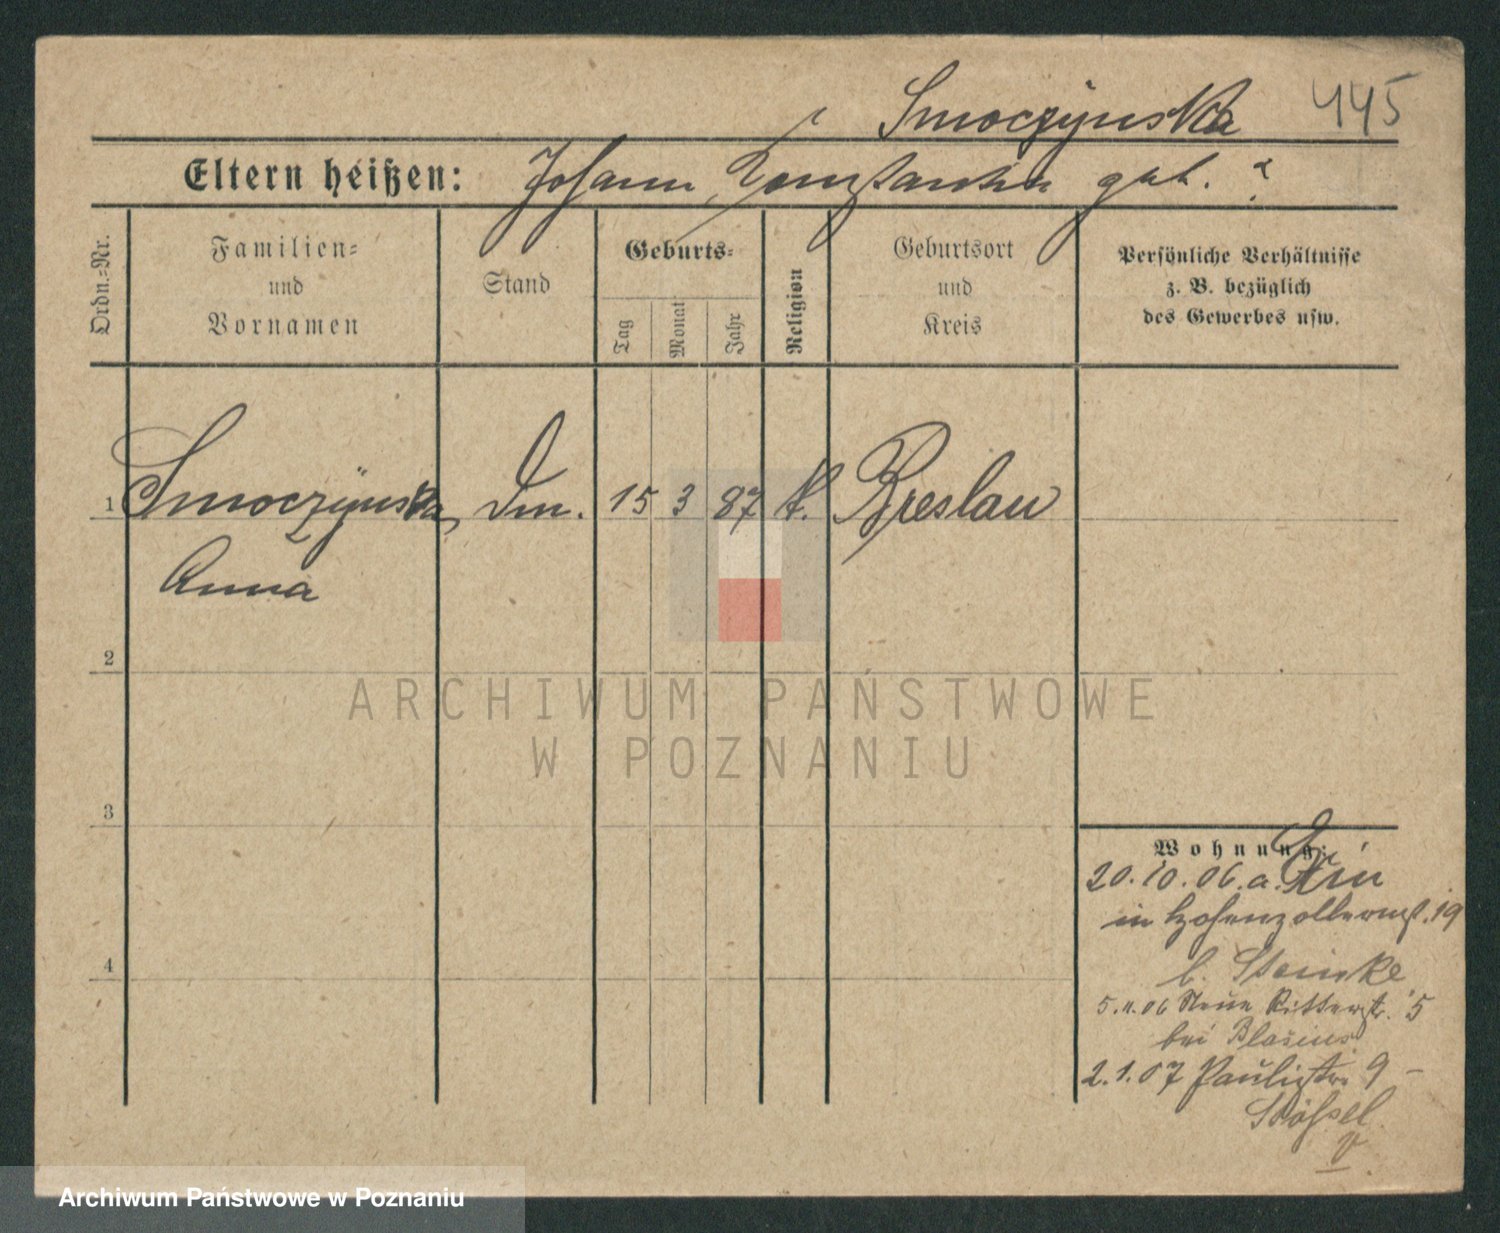 Smoczÿnska 445
Eltern heißen: Johann, Konstantin geb. ?
Ordn.=Nr.
Familien= und Vornamen
Stand
Geburts=
Tag
Monat
Jahr
Religion
Geburtsort und Kreis
Persönliche Verhältnisse
z. B. bezüglich
des Gewerbes usw.
1 Smoczÿnska, Dm. 15 3 87 k. Breslau
Anna
2
ARCHIWUM PAŃSTWOWE
W POZNANIU
3
Wohnung:
20.10.06. a.
in Hohenzollernst. 19
b. Steinke
5.11.06 Neue Ritterstr. 5
bei Blasius
2.1.07 Paulistr. 9 –
Stößel
4
Archiwum Państwowe w Poznaniu